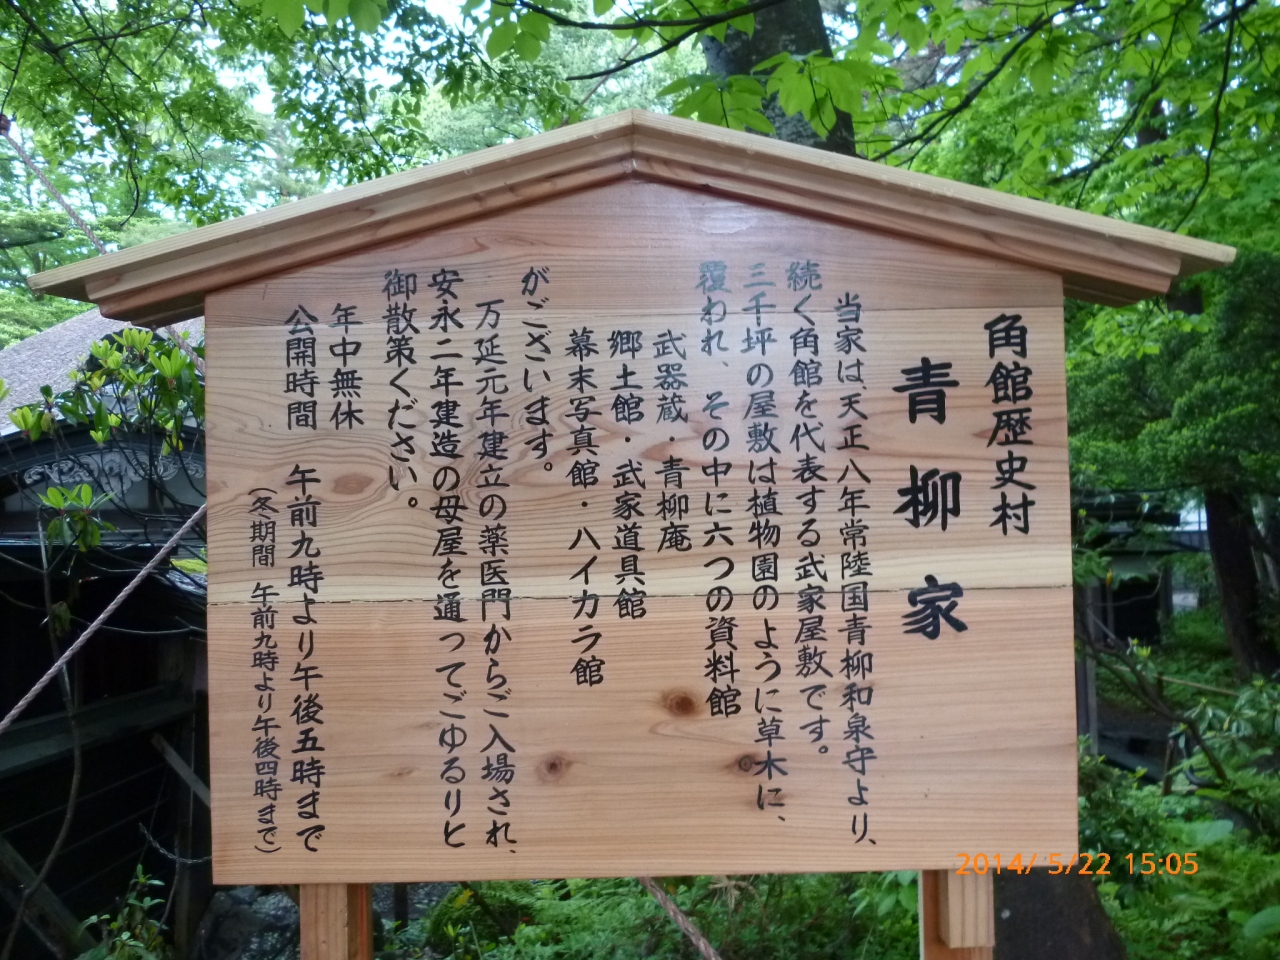 角館歴史村
青柳家
当家は、天正八年常陸国青柳和泉守より、
続く角館を代表する武家屋敷です。
三千坪の屋敷は植物園のように草木に、
覆われ、その中に六つの資料館
武器蔵・青柳庵
郷土館・武家道具館
幕末写真館・ハイカラ館
がございます。
万延元年建立の薬医門からご入場され、
安永二年建造の母屋を通ってごゆるりと
御散策ください。
年中無休
公開時間 午前九時より午後五時まで
(冬期間 午前九時より午後四時まで)
2014/ 5/22 15:05